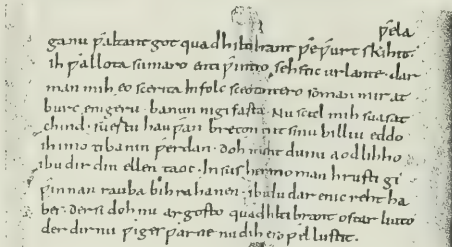 ƿela
ganu ƿaltant got quad hiltibrant ƿeƿurt skihit.
ih ƿallota sumaro enti ƿintro sehstic urlante. dar
man mih eo scerita Infolc sceotantero soman mir at
burc enigeru. banun nigifasta. Nu scal mih suasat
chind. suertu hauƿan breton mit sinu billiu eddo
ih imo tibanin ƿerdan. doh maht dunu aodlihho
ibu dir din ellen taoc. In sus heremo man hrusti gi
ƿinnan rauba bihrahanen. ibudu dar enic reht ha
bes. dersi doh nu argosto quad hiltibrant ostar liuto
der dirnu ƿiges ƿarne nu dih es so ƿel lustit.